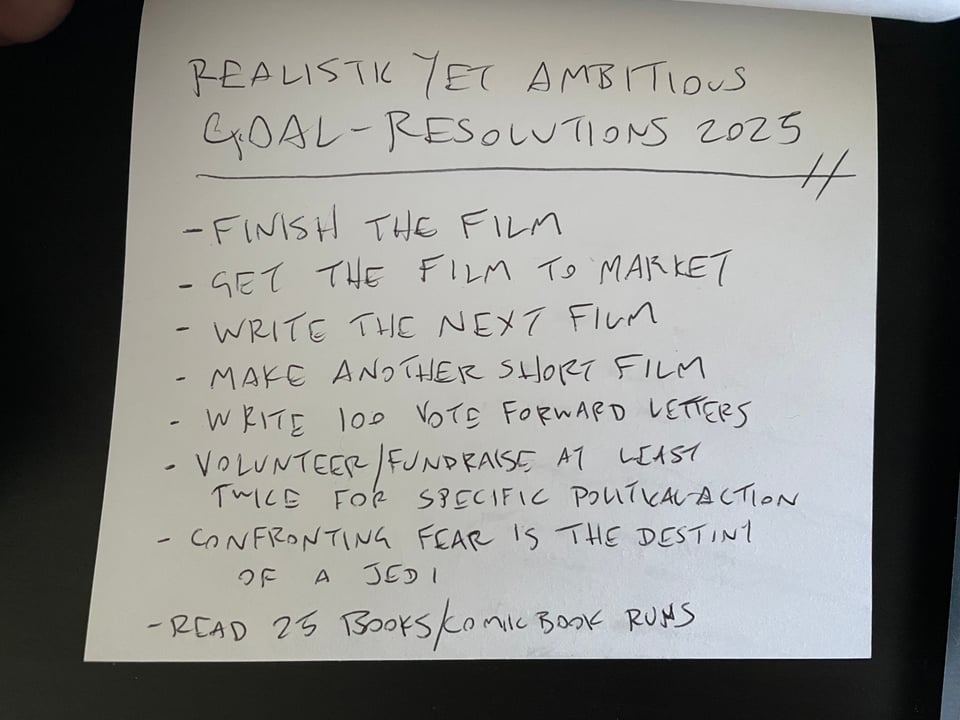 REALISTIC YET AMBITIOUS
GOAL-RESOLUTIONS 2025
- FINISH THE FILM
- GET THE FILM TO MARKET
- WRITE THE NEXT FILM
- MAKE ANOTHER SHORT FILM
- WRITE 100 VOTE FORWARD LETTERS
- VOLUNTEER/FUNDRAISE AT LEAST
TWICE FOR SPECIFIC POLITICAL ACTION
- CONFRONTING FEAR IS THE DESTINY
OF A JEDI
- READ 25 BOOKS/COMIC BOOK RUNS